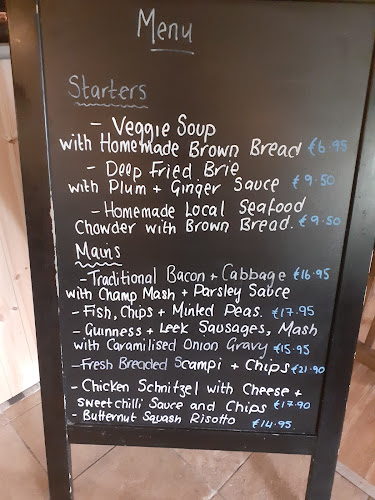 Menu
Starters
- Veggie Soup
with Homemade Brown Bread €6.95
- Deep Fried Brie
with Plum + Ginger Sauce €9.50
- Homemade Local Seafood
Chowder with Brown Bread. €9.50
Mains
- Traditional Bacon + Cabbage €16.95
with Champ Mash + Parsley Sauce
- Fish, Chips + Minted Peas. €17.95
- Guinness + Leek Sausages, Mash
with Caramilised Onion Gravy €15.95
- Fresh Breaded Scampi + Chips €21.90
- Chicken Schnitzel with Cheese +
Sweet chilli Sauce and Chips €17.90
- Butternut Squash Risotto €14.95